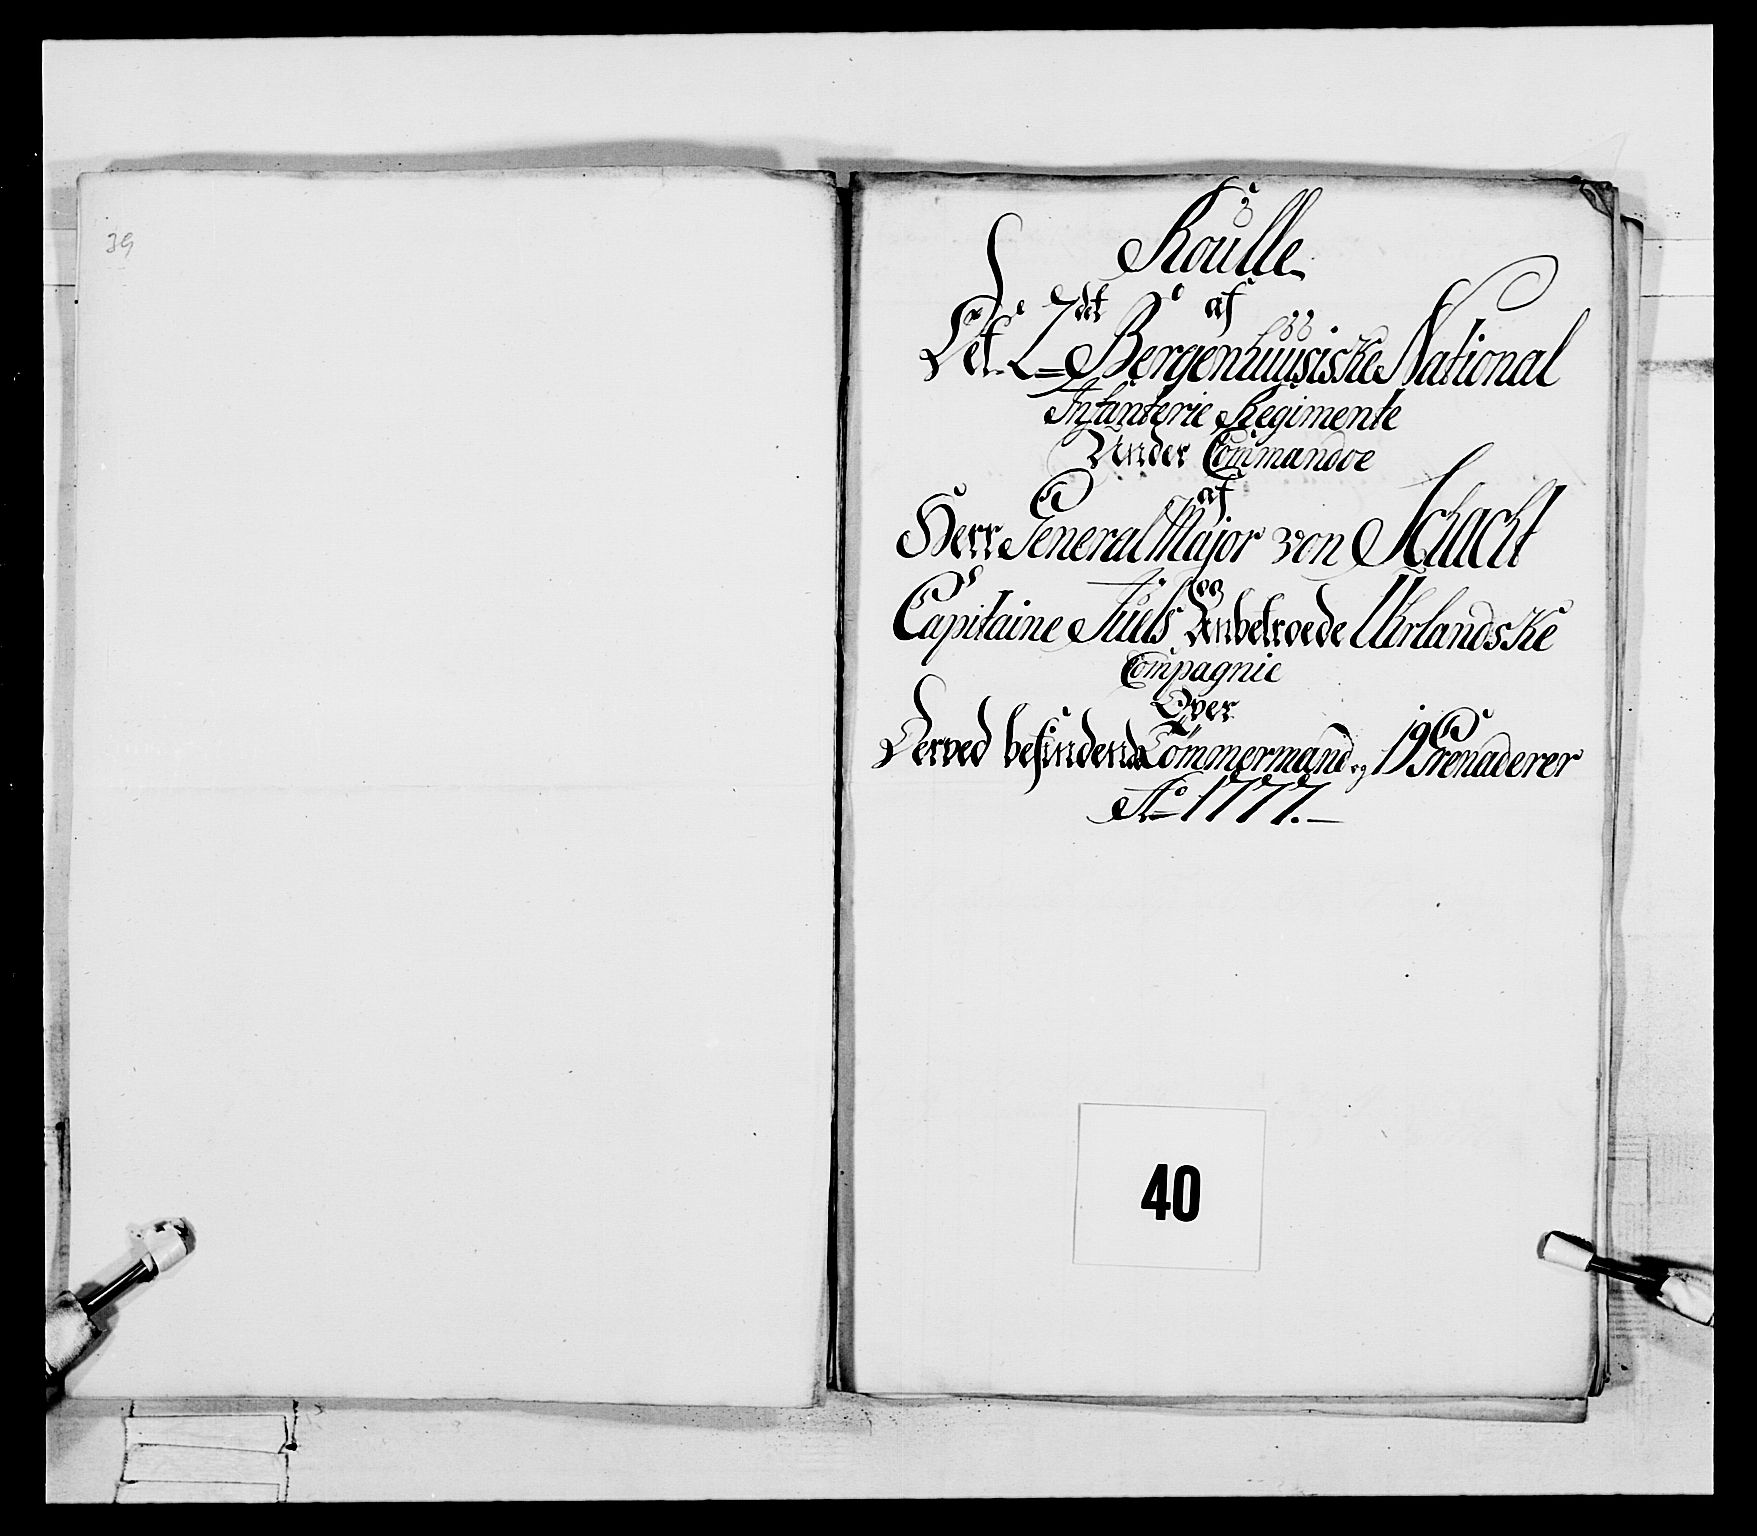 39
Roulle
af
Det 2det Bergenhuusiske National
Infanterie Regimente
Under Commandoe
af
Herr General Major von Schacht
Capitaine Juels Anbetroede Uhrlandske
Compagnie
Over
Derved befindende Tömmermand og 19 Grenaderer
Ao 1777.
40